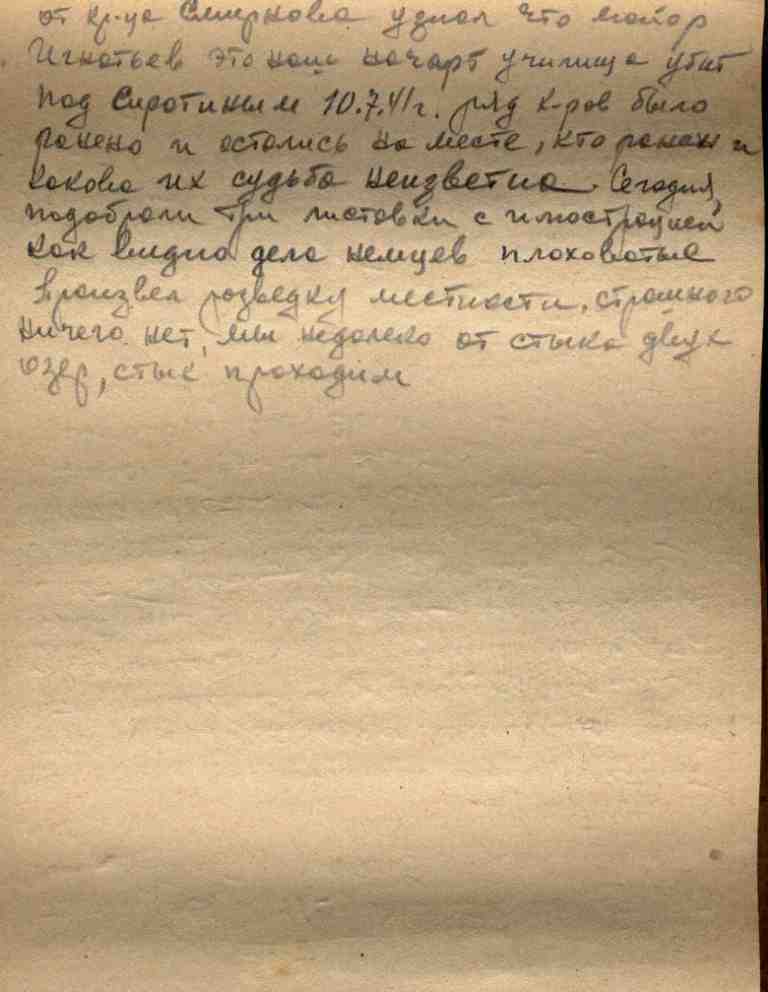 от кр-ца Смирнова узнал что майор
Игнатьев это наш начарт училища убит
под Сиротиным 10.7.41г. ряд к-ров было
ранено и остались на месте, кто ранен и
какова их судьба неизветна. Сегодня,
подобрали три листовки с иллюстрацией
как видно дела немцев плоховатые
Произвел розведку местности, страшного
ничего нет, мы недалеко от стыка двух
озер, стык проходим